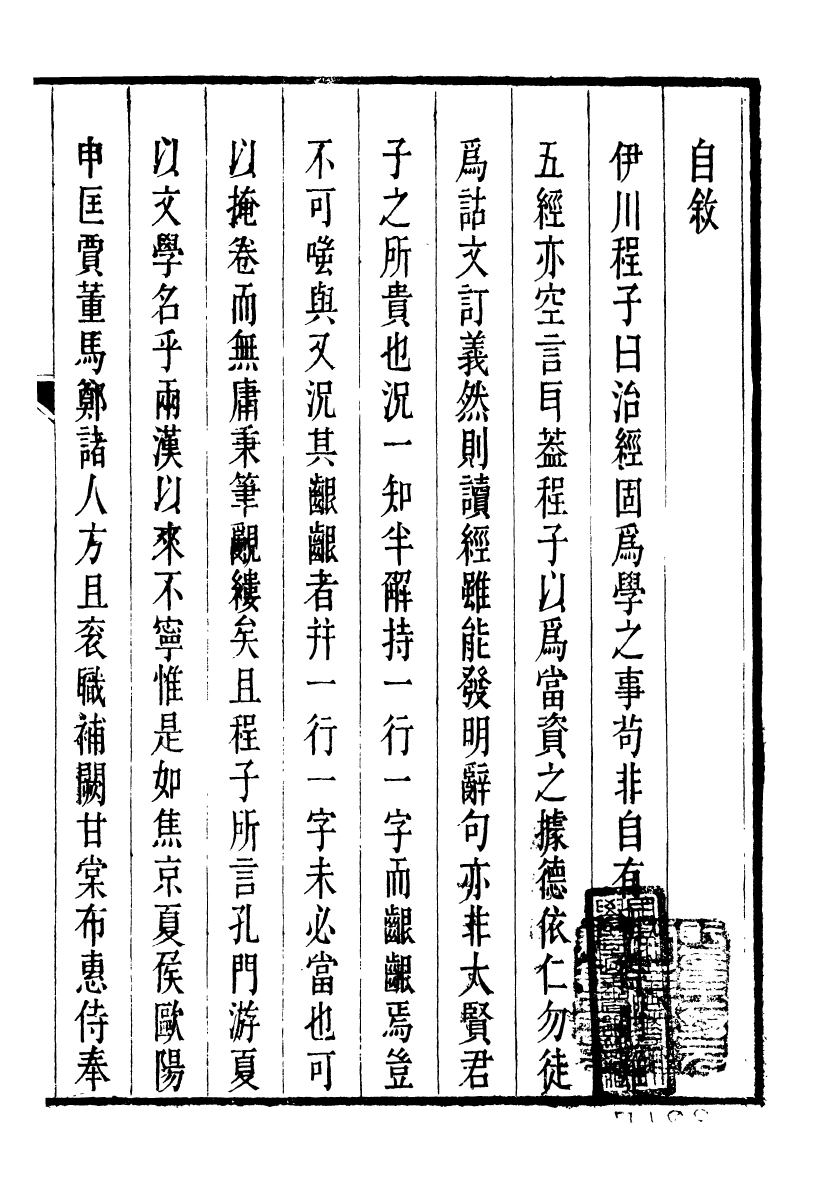 自敘
伊川程子曰治經固爲學之事茍非自有
五經亦空言耳葢程子以爲當資之據德依仁勿徒
爲詁文訂義然則讀經雖能發明辭句亦非大賢君
子之所貴也況一知半解持一行一字而齦齦焉豈
不可嗤與又況其齦齦者幷一行一字未必當也可
以掩卷而無庸秉筆覼縷矣且程子所言孔門游夏
以文學名乎兩漢以來不寧惟是如焦京夏侯歐陽
申匡賈董馬鄭諸人方且袞職補闕甘棠布惠侍奉